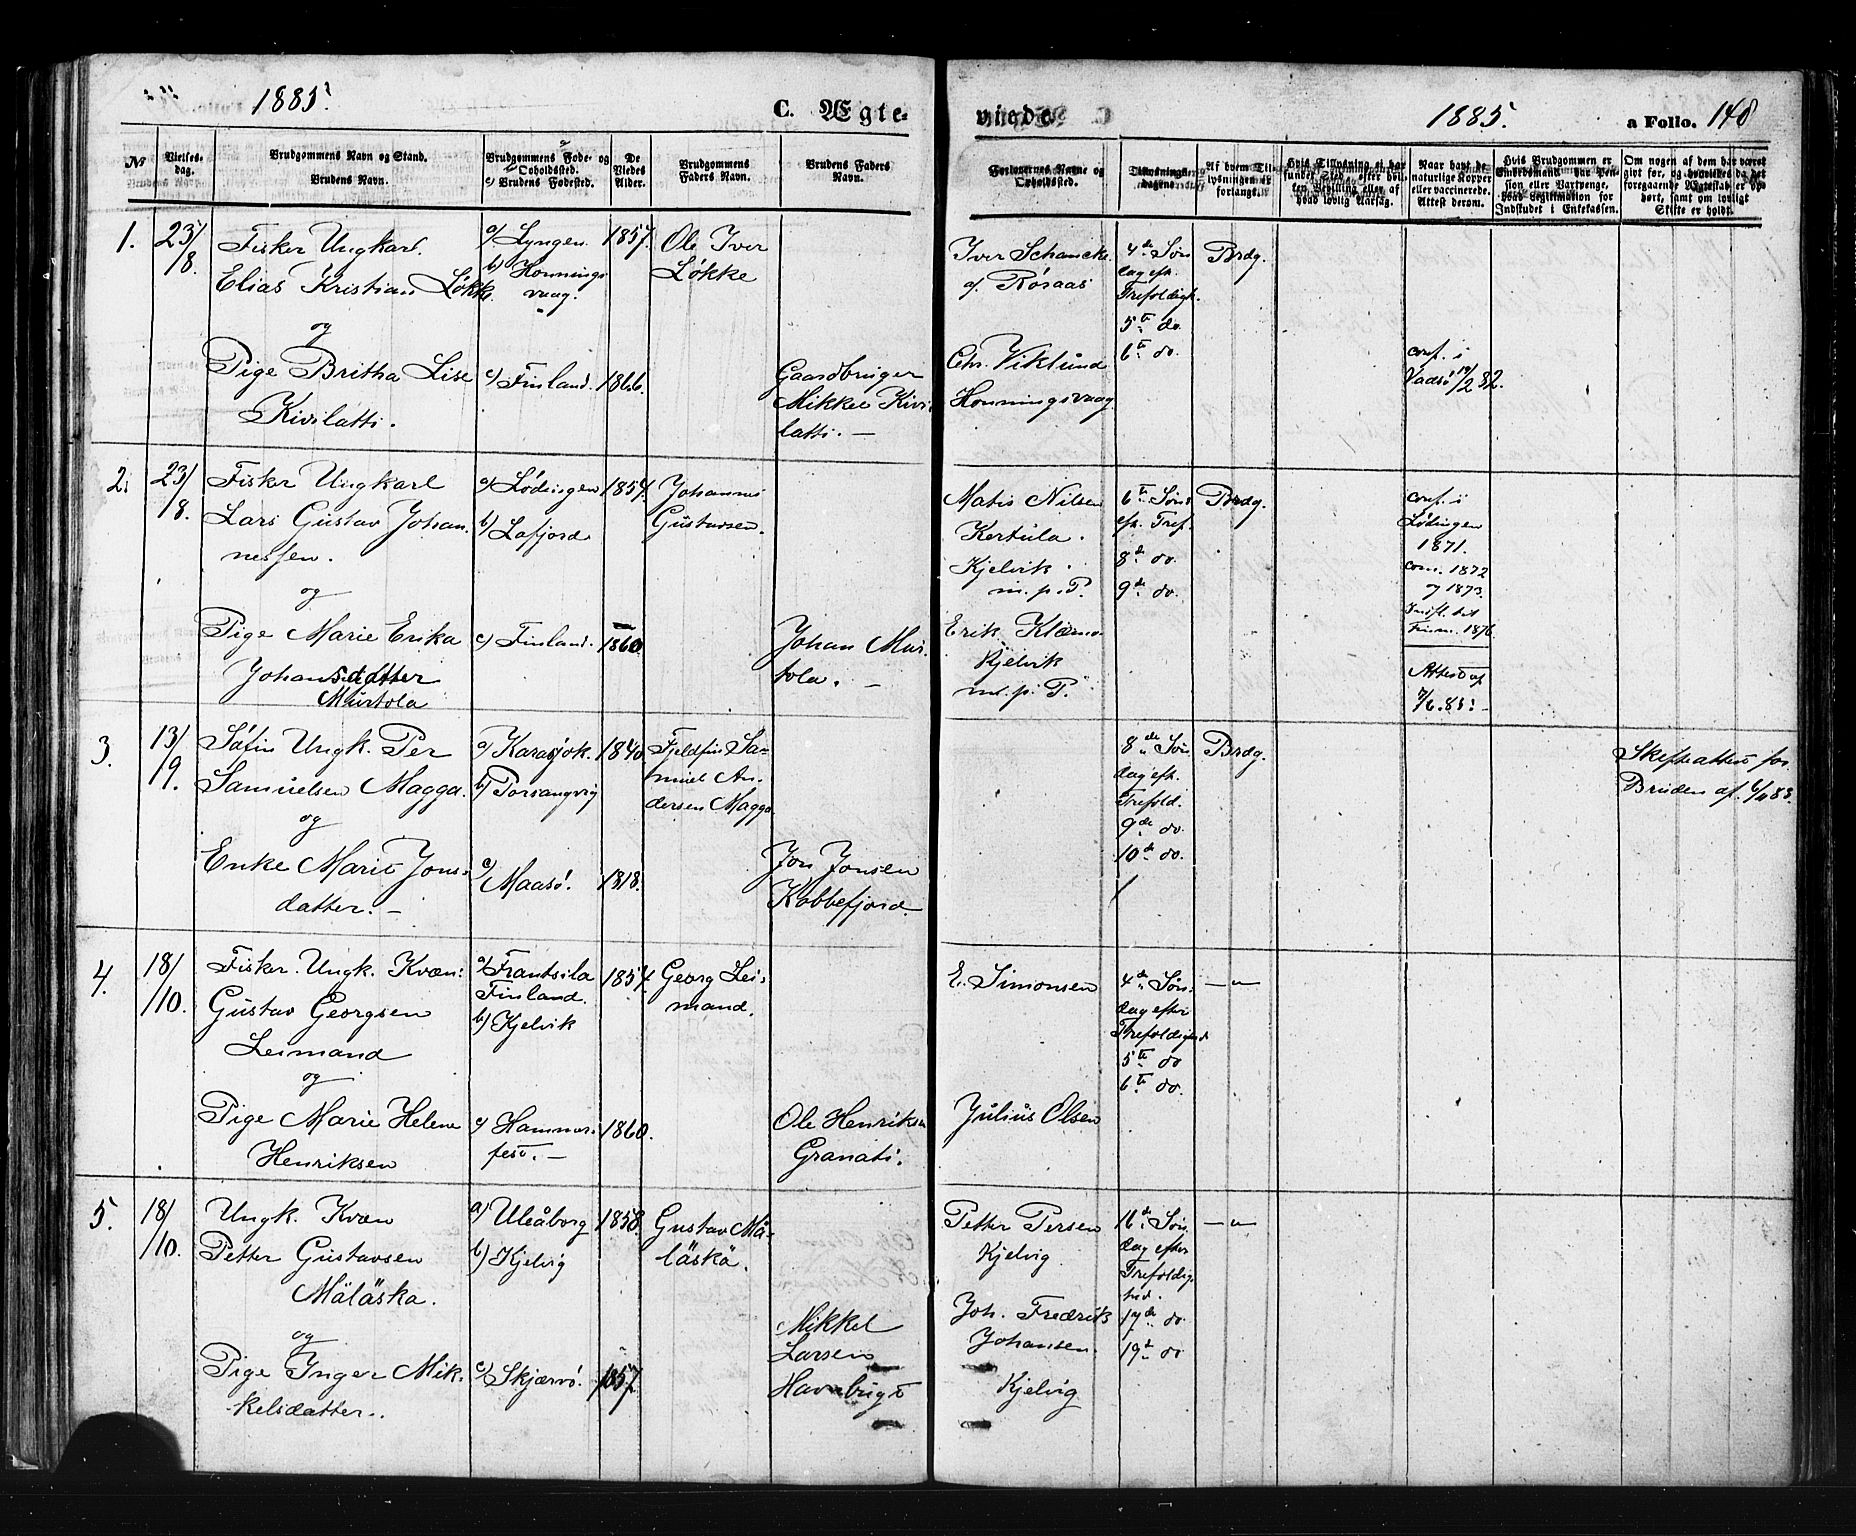 1885.
C. Ægte-
viede
1885.
a Folio. 148
No
Vielses-
dag.
Brudgommens Navn og Stand.
Brudens Navn.
Brudgommens Føde- og
Opholdssted.
Brudens Fødested.
De
Viedes
Alder.
Brudgommens
Faders Navn.
Brudens Faders
Navn.
Forlovernes Navne og
Opholdssted.
Tillysnings-
dagene.
Af hvem Til-
lysningen er
forlangt.
Hvis Tillysning ei har
fundet Sted, efter hvil-
ken Bevilling eller af
hvad lovlig Aarsag.
Naar havt de
naturlige Kopper
eller vaccinerede.
Attest derom.
Hvis Brudgommen er
Embedsmand, har Pen-
sion eller Vartpenge,
hvad Legitimation for
Indskudet i Enkekassen.
Om nogen af dem har været
gift før, og hvorledes da det
foregaaende Ægteskab er op-
hørt, samt om lovligt
Skifte er holdt.
1.
23/8.
Fisker Ungkarl
Elias Kristian Løkke
og
Pige Britha Lise
Kivilatti.
a) Lyngen
b) Honnings-
vaag.
c) Finland.
1857.
1866.
Ole Iver
Løkke
Gaardbruger
Mikkel Kivi-
latti. —
Iver Schancke
af Røsaas
Chr. Viklund
Honningsvaag
4de Søn-
dag eft.
Trefoldigh.
5te do.
6te do.
Brdg.
conf. i
Vadsø 19/2 82.
2.
23/8
Fisker Ungkarl
Lars Gustav Johan-
nessen.
og
Pige Marie Erika
Johansdatter
Murtola
a) Lødingen
b) Lafjord
c) Finland.
1857.
1860
Johannes
Gustavsen.
Johan Mur-
tola. —
Matis Nilsen
Kertula.
Kjelvik.
m. p. P.
Erik
Kjelvik
m. p. P.
6te Sønd.
eft. Tref.
8de do.
9de do.
Brdg.
conf. i
Lødingen
1871.
com. 1872
og 1873.
Indfl. til
Finm. 1876
Attest af
7/6. 85. —
3.
13/9.
Søfin Ungk. Per
Samuelsen Magga.
og
Enke Marit Jons-
datter. —
a) Karasjok.
b) Porsangvig
c) Maasø.
1840
1818.
Fjeldfin Sa-
muel An-
dersen Magga
Jon Jonsen
Kobbefjord.
8de Søn-
dag eft.
Trefold.
9de do.
10de do.
Brdg.
Skifteattest for
Bruden af
4.
18/10.
Fisker. Ungk. Kvæn:
Gustav Georgsen
Leimand
og
Pige Marie Helene
Henriksen
a) Frantsila
Finland.
b) Kjelvik
c) Hammer-
fest. —
1857.
1860.
Georg Lei-
mand.
Ole Henriksen
Granati.
E. Simonsen
Julius Olsen
4de Søn-
dag efter
Trefoldighed
5te do
6te do.
—"—
5.
18/10.
Ungk. Kvæn
Petter Gustavsen
Mäläska.
og
Pige Inger Mik-
kelsdatter.
a) Uleåborg
b) Kjelvig
c) Skjærvø.
1858.
1857.
Gustav Mä-
läskä.
Mikkel
Larsen
Havnbugt
Petter Persen
Kjelvig
Joh. Fredrik
Johansen.
Kjelvig
16de Søn-
dag efter
Trefoldig-
hed.
17de do.
19de do
—"—